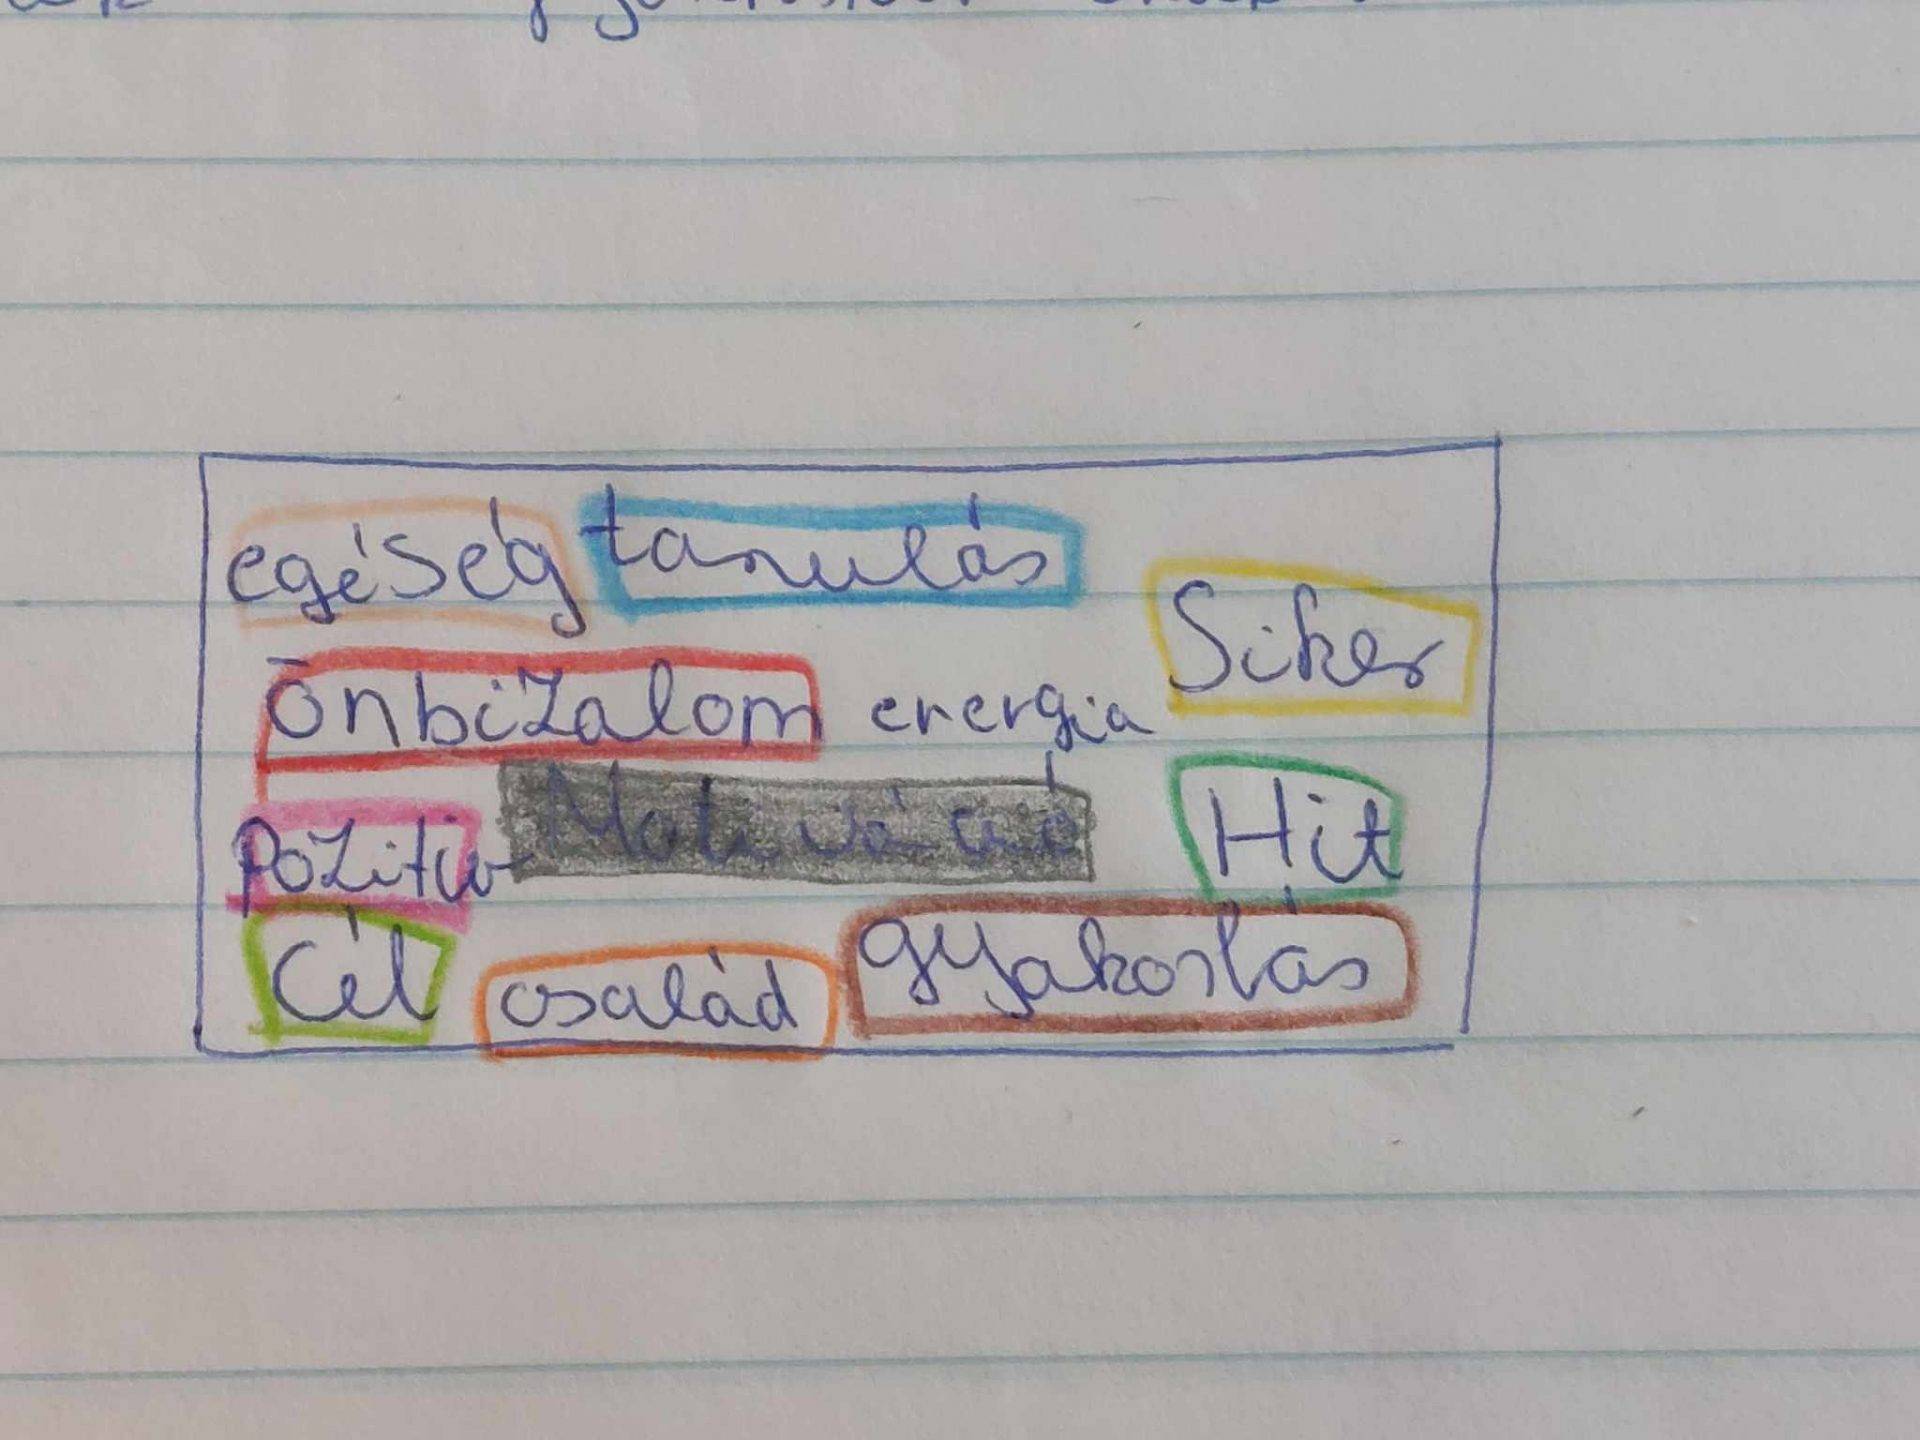 egéség tanulás
Siker
önbizalom energia
pozitiv Motiváció Hit
Cél család gyakorlás